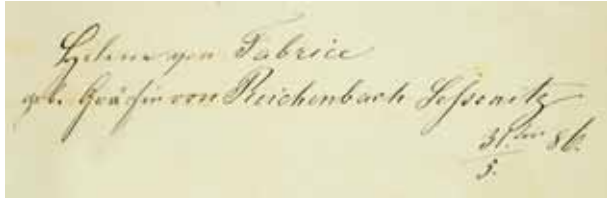 Helene von Fabrice
geb. Gräfin von Reichenbach Lessonitz
31. 86.
5.